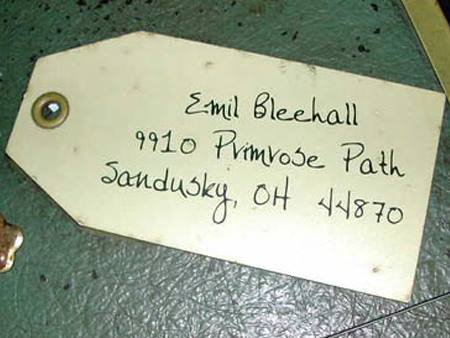 Emil Bleehall
9910 Primrose Path
Sandusky, OH 44870